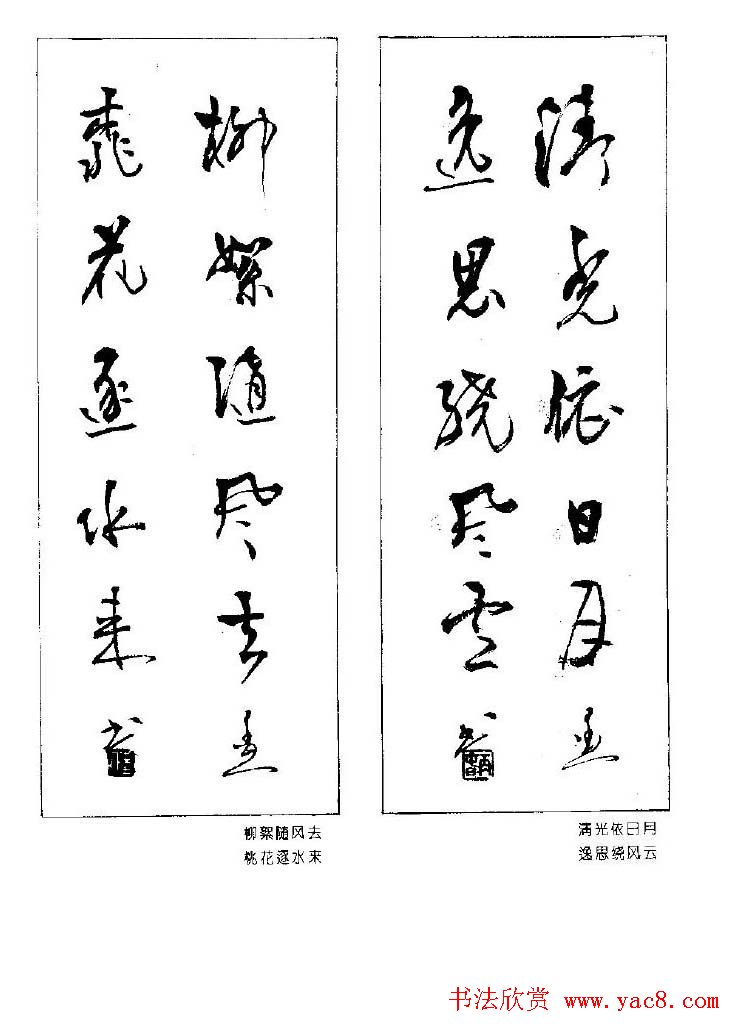 清光依日月
逸思绕风雲
清光依日月
逸思绕风云
柳絮随风去
桃花逐水来
柳絮随风去
桃花逐水来
书法欣赏 www.yac8.com